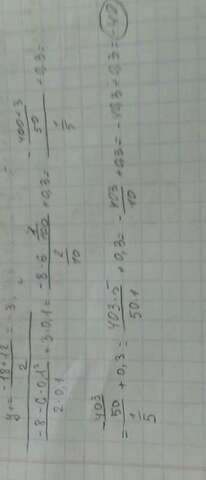 y₁ = (-18+12)/2 = -3
(-8-6·0,1²)/(2·0,1) + 3·0,1 = (-8·6 1/100)/(2/10) + 0,3 = -(400+3)/50 / (1/5) + 0,3 =
= (403/50)/(1/5) + 0,3 = (403·5)/(50·1) + 0,3 = -403/10 + 0,3 = -40,3 + 0,3 = -40